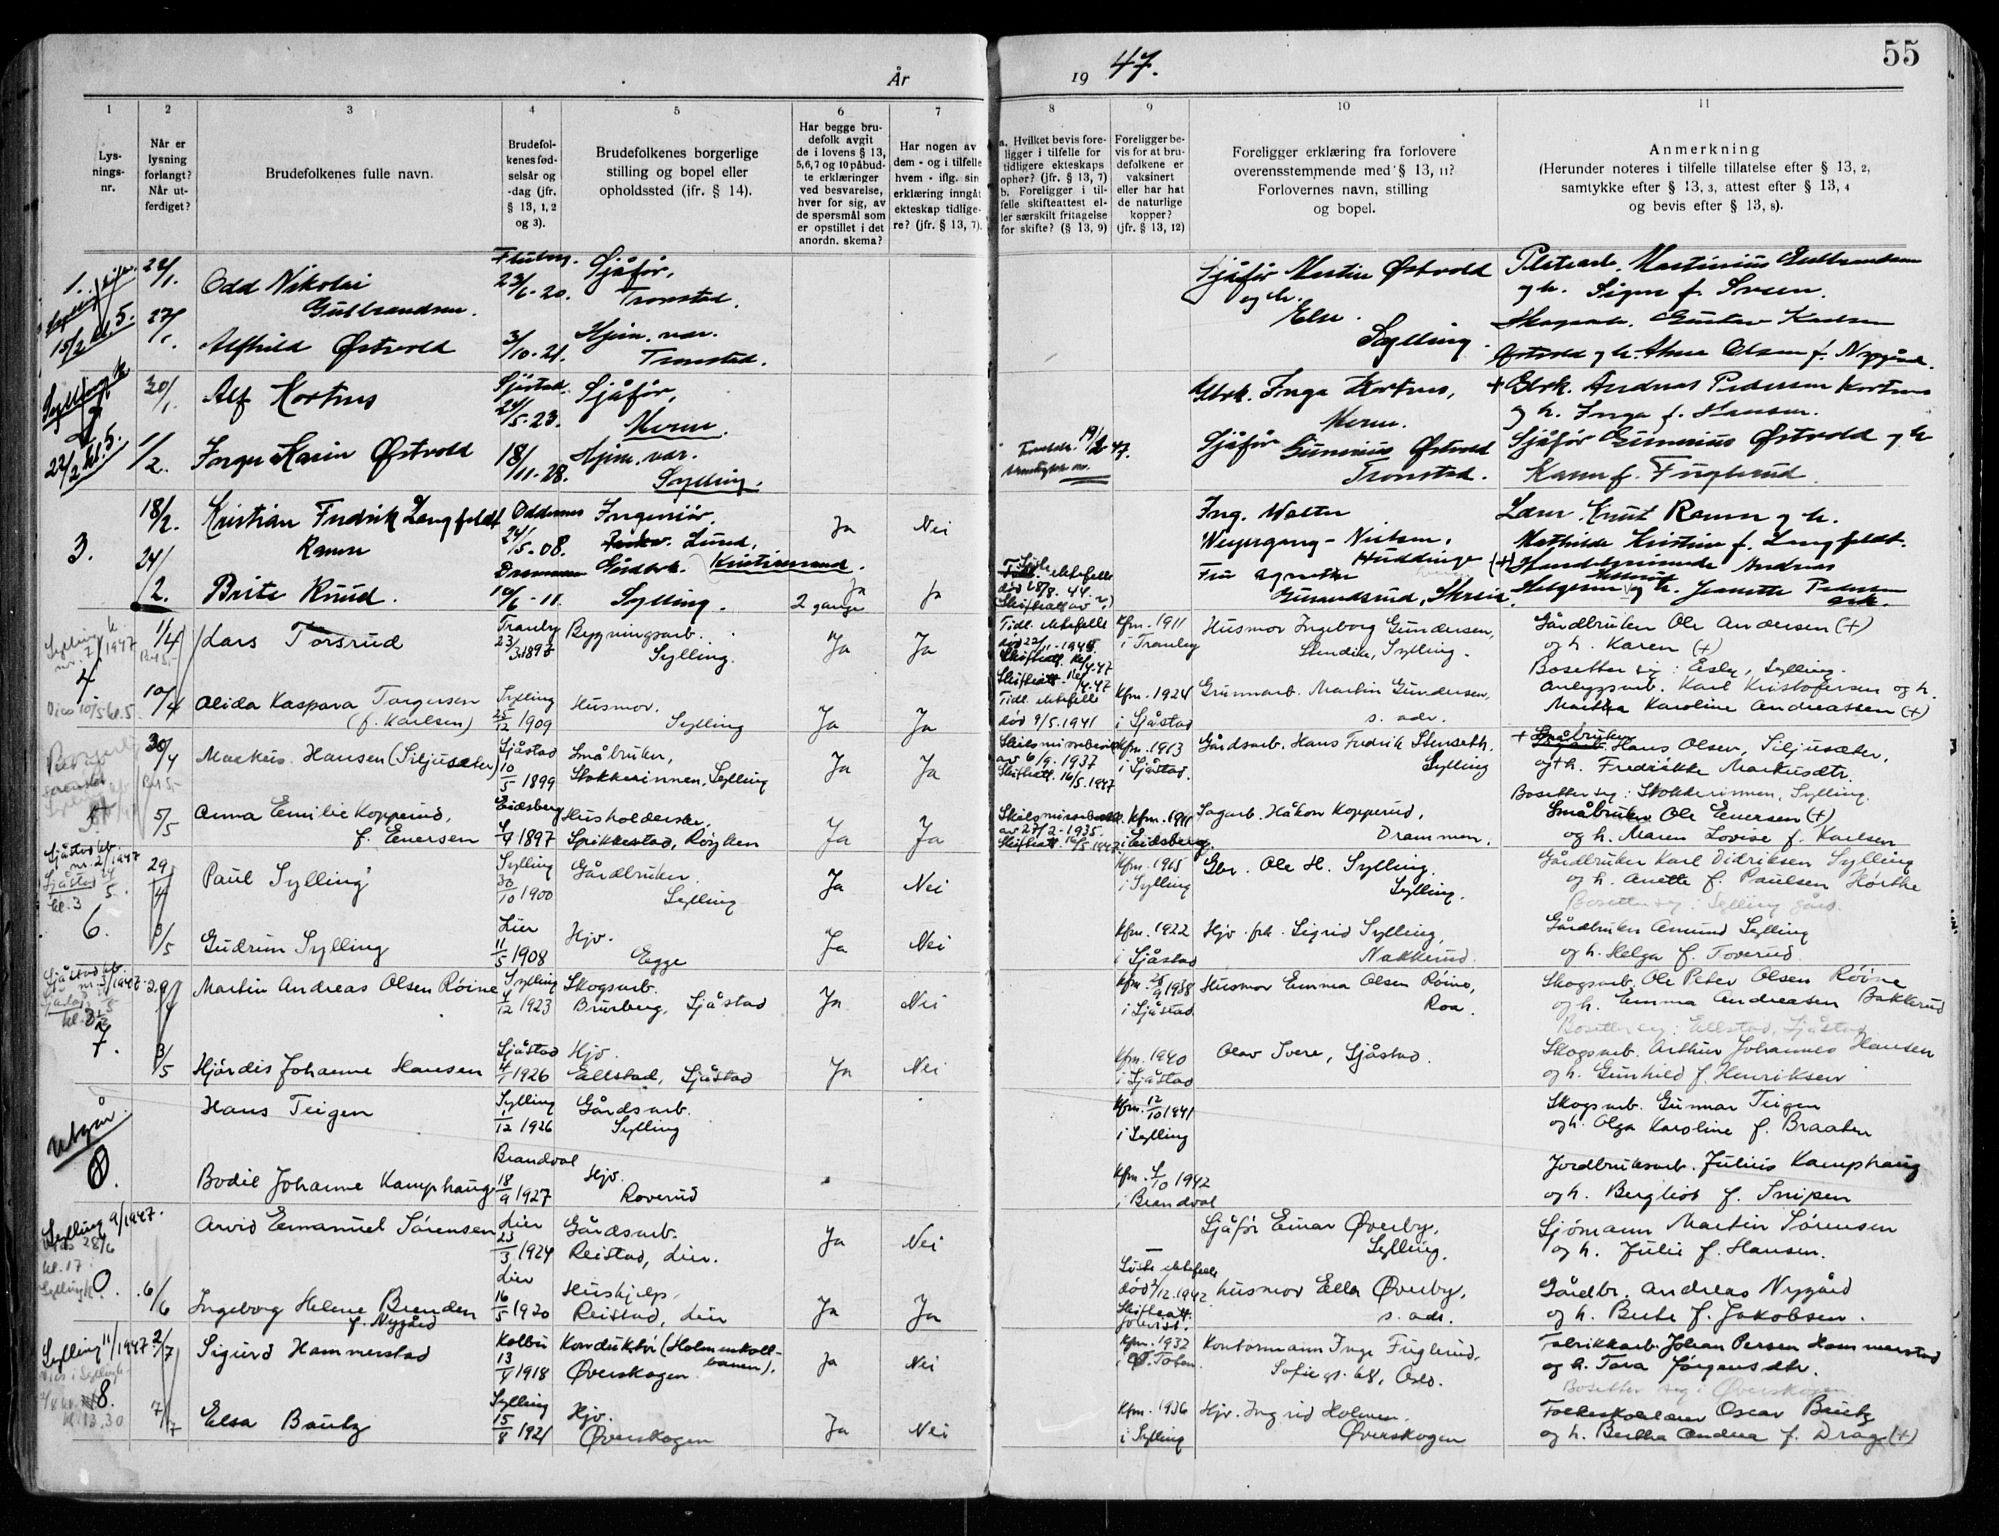 År 1947.
55
1
2
3
4
5
6
7
8
9
10
11
Lys-
nings-
nr.
Når er
lysning
forlangt?
Når ut-
ferdiget?
Brudefolkenes fulle navn.
Brudefol-
kenes fød-
selsår og
-dag (jfr.
§ 13, 1, 2
og 3).
Brudefolkenes borgerlige
stilling og bopel eller
opholdssted (jfr. § 14).
Har begge bru-
defolk avgit
de i lovens § 13,
5,6,7 og 10 påbud-
te erklæringer
ved besvarelse,
hver for sig, av
de spørsmål som
er opstillet i det
anordn. skema?
Har nogen av
dem - og i tilfelle
hvem - iflg. sin
erklæring inngåt
ekteskap tidlige-
re? (jfr. § 13, 7).
a. Hvilket bevis fore-
ligger i tilfelle for
tidligere ekteskaps
ophør? (jfr. § 13, 7)
b. Foreligger i til-
felle skifteattest el-
ler særskilt fritagelse
for skifte? (§ 13, 9)
Foreligger be-
vis for at bru-
defolkene er
vaksinert
eller har hat
de naturlige
kopper?
(jfr. § 13, 12)
Foreligger erklæring fra forlovere
overensstemmende med § 13, 11?
Forlovernes navn, stilling
og bopel.
Anmerkning
(Herunder noteres i tilfelle tillatelse efter § 13, 2,
samtykke efter § 13, 3, attest efter § 13, 4
og bevis efter § 13, 8).
1.
15/2 kl. 5.
22/1.
27/1.
Odd Nikolai
Gulbrandsen.
23/6-20.
Sjåfør,
Tronstad.
Sjåfør Martin Østvold
og h.
Else.
Sylling.
Martinius Gulbrandsen
og h. Signe f. Sveen.
Alfhild Østvold
3/10-21.
Hjem. vær.
Tronstad.
Gustav Karlsen
Østvold og h. Anna Olsen f. Nygård.
2
22/2 kl. 5.
30/1.
Alf Kortnes
Sjåstad.
24/5-23.
Sjåfør,
Meren.
Gbrk. Inga Kortnes,
Meren.
+ Gbrk. Andreas Pedersen Kortnes
og h. Inga f. Hansen.
1/2.
Inger Karin Østvold
18/11-28.
Hjem. vær.
Sylling.
19/2 47.
Sjåfør Gunerius Østvold
Tronstad.
Sjåfør Gunerius Østvold og h.
Karen f. Fuglerud.
3.
18/2.
24/2.
Kristian Fredrik Lengfeldt
Ramse
Oddernes
24/5-08.
Ingeniør,
Lund,
Kristiansand.
Ja
Nei
Ing. Walter
Weyergang-Nielsen,
Huddinge
Lærer Knut Ramse og h.
Mathilde Kristine f. Lengfeldt.
Brite Ruud.
Drammen
10/6-11.
Gudbrk.
Sylling.
Ja
2 gange
Ja
Siste ektefelle
død 28/8. 44.
Fru Agnethe
Gunerudsrud, Skreia.
(+) Handelsreisende Andreas
Helgesen og h. Jeanette Pedersen
4.
Sylling k.
nr. 7/1947
Vies 10/5 kl. 5.
1/4
Kr. 5.-
Lars Torsrud
Tranby
23/3 1895
Bygningsarb.
Sylling.
Ja
Ja
Tidl. ektefelle
død 22/11-1945
Skifteatt.
Kfm. 1911
i Tranby
Husmor Ingeborg Gundersen,
Stendike, Sylling.
Gårdbruker Ole Andersen (+)
og h. Karen (+)
Bosetter sig: Esby, Sylling.
10/4
Alida Kaspara Torgersen
(f. Karlsen)
Sylling
25/12 1909
Husmor.
Sylling
Ja
Ja
Tidl. ektefelle
død 9/5. 1941
Kfm. 1924
i Sjåstad
Grunnarb. Martin Gundersen,
s. adr.
Anleggsarb. Karl Kristofersen og h.
Martha Karoline Andreassen (+)
5
Borgerlig
30/4
Kr. 5.-
Markus Hansen (Siljusæter)
Sjåstad
10/5 1899
Småbruker,
Stokkerinnen, Sylling
Ja
Ja
Skilsmissebevill.
av 6/9. 1937
Skifteatt. 16/5. 1947
Kfm. 1913
i Sjåstad.
Gårdsarb. Hans Fredrik Stenseth.
Sylling
+ Småbruker
Hans Olsen, Siljusæter,
og h. Fredrikke Markusdtr.
Bosetter sig: Stokkerinnen, Sylling.
5/5
Anna Emilie Kopperud,
f. Enersen
Eidsberg
4/9 1897
Husholderske,
Spikkestad, Røyken
Ja
Ja
Skilsmissebevill.
av 27/2-1935.
Kfm. 1911
i Eidsberg
Sagarb. Håkon Kopperud,
Drammen.
Småbruker Ole Enersen (+)
og h. Maren Lovise f. Karlsen
6.
Sjåstad kb.
nr. 2/1947
Sjåstad 24/5.
kl. 3
29/4
Paul Sylling
Sylling
30/10 1900
Gårdbruker.
Sylling
Ja
Nei
Kfm. 1915
i Sylling
Gbr. Ole H. Sylling,
Sylling.
Gårdbruker Karl Didriksen Sylling
og h. Anette f. Paulsen Hørthe
Bosetter sig: Sylling gård.
3/5
Gudrun Sylling
Lier
11/5 1908
Hjv.
Egge
Ja
Nei
Kfm. 1922
i Sjåstad
Hjv. frk. Sigrid Sylling,
Nakkerud.
Gårdbruker Amund Sylling
og h. Helga f. Toverud.
7.
Sjåstad kb.
nr. 3/1947
29/4
Martin Andreas Olsen Røine
Sylling
4/12 1923
Skogsarb.
Brurberg, Sjåstad
Ja
Nei
Kfm. 25/9 1938
i Sjåstad
Husmor Emma Olsen Røine,
Roa.
Skogsarb. Ole Peter Olsen Røine
og h. Emma Andreasen Bakkerud
Bosetter sig: Ellstad, Sjåstad
3/5
Hjørdis Johanne Hansen
Sjåstad
4/1 1926
Hjv.
Ellstad, Sjåstad
Ja
Nei
Kfm. 1940
i Sjåstad
Olav Svere, Sjåstad.
Skogsarb. Arthur Johannes Hansen
og h. Gunhild f. Henriksen
Utgår.
8.
Hans Teigen
Sylling
1/12 1926
Gårdsarb.
Sylling
Kfm. 12/10 1941
i Sylling
Skogsarb. Gunnar Teigen
og h. Olga Karoline f. Braaten
Bodil Johanne Kamphaug
Brandval
18/9 1927
Hjv.
Roverud
Kfm. 4/10 1942
i Brandval
Jordbruksarb. Julius Kamphaug
og h. Bergliot f. Snipen
Sylling 9/1947.
Vies 28/6
kl. 17
Arvid Emanuel Sørensen
Lier
23/3 1924
Gårdsarb.
Reistad, Lier.
Ja
Nei
Sjåfør Einar Øverby,
Sylling.
Sjømann Martin Sørensen
og h. Julie f. Hansen.
6/6
Ingeborg Helene Brenden
f. Nygård
Lier
16/5 1920
Hushjelp,
Reistad, Lier
Ja
Ja
Siste ektefelle
død 2/12. 1942
Skifteatt.
Husmor Ella Øverby,
s. adr.
Gårdbr. Andreas Nygård
og h. Beate f. Jakobsen.
Sylling 11/1947
8.
kl. 13.30
2/7
Sigurd Hammerstad
Kolbu
13/1 1918
Konduktør (Holmenkoll-
banen),
Øverskogen
Ja
Nei
Kfm. 1932
i Ø. Toten
Kontormann Inge Fuglerud,
Sofies gt. 68, Oslo.
Fabrikkarb. Johan Persen Hammerstad
og h. Tora Jørgensdtr.
Bosetter sig: Øverskogen.
7/7
Elsa Bautz
Sylling
15/8 1921
Hjv.
Øverskogen
Ja
Nei
Kfm. 1936
i Sylling
Hjv. Ingrid Holmen.
Øverskogen
Folkeskolelærer Oscar Bautz
og h. Bertha Andrea f. Drag (+)